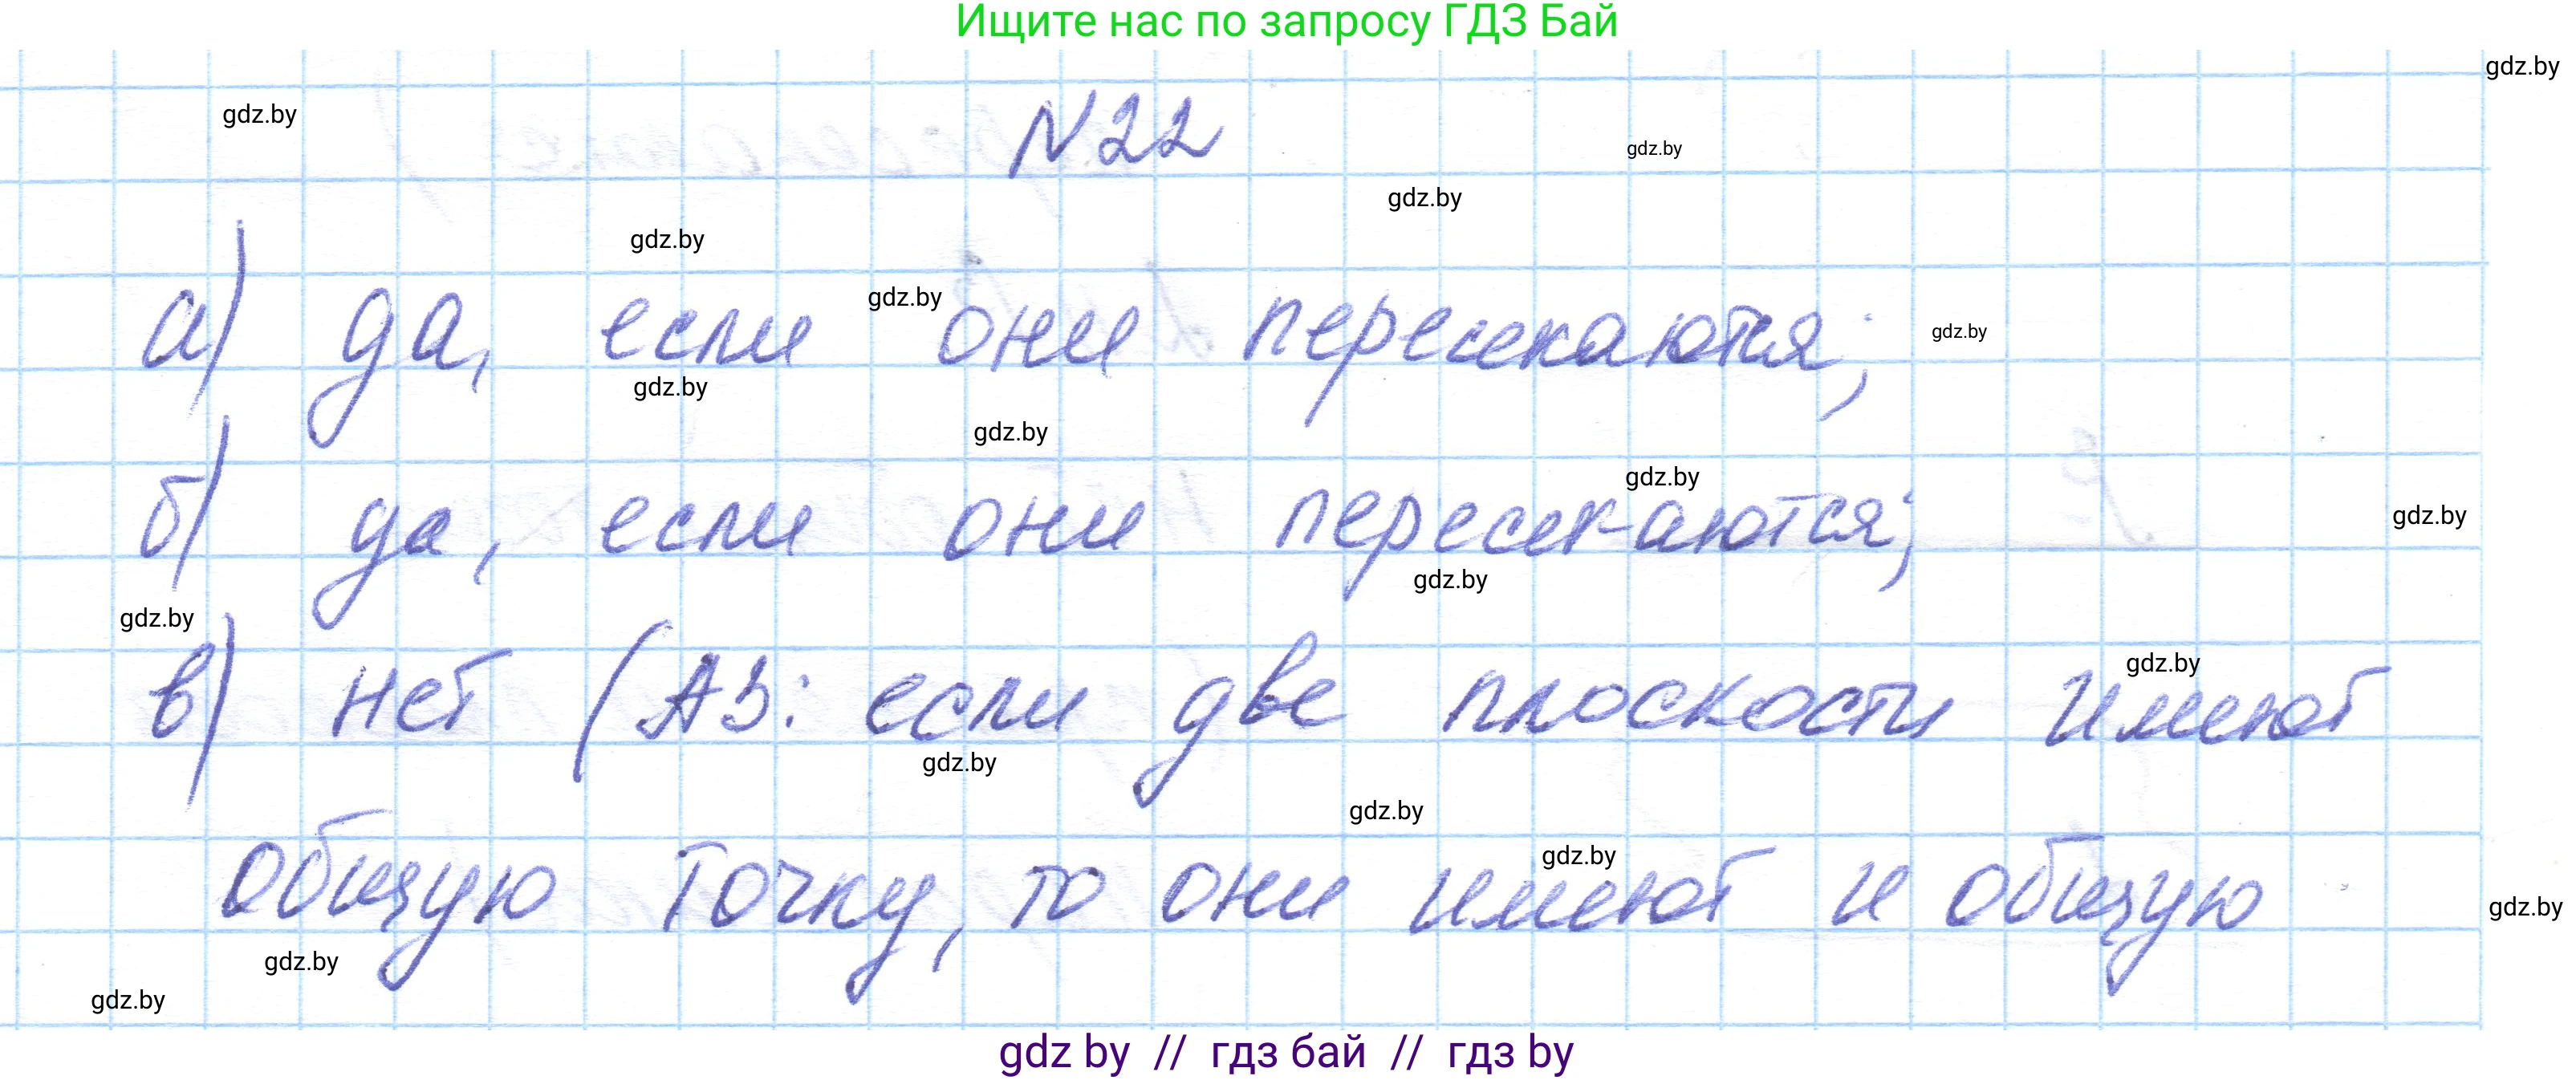 Ищите нас по запросу ГДЗ Бай
gdz.by
gdz.by
N22
gdz.by
gdz.by
gdz.by
gdz.by
а) да, если они пересекаются;
gdz.by
gdz.by
gdz.by
gdz.by
б) да, если они пересекаются;
gdz.by
gdz.by
gdz.by
gdz.by
в) нет (А3: если две плоскости имеют
gdz.by
gdz.by
gdz.by
общую точку, то они имеют и общую
gdz.by
gdz.by
gdz.by
gdz by // гдз бай // гдз by